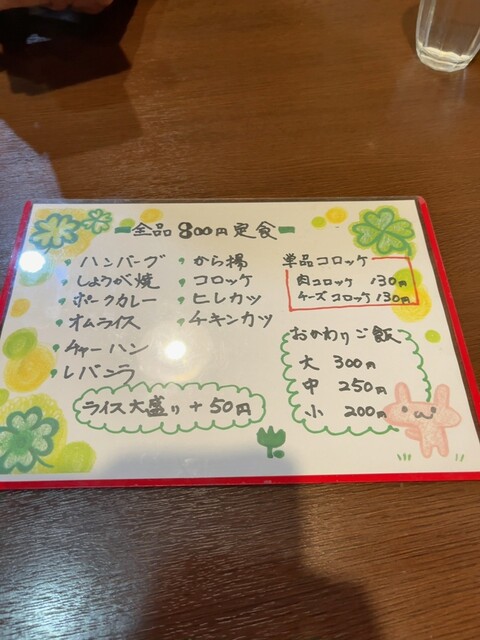 全品800円定食
ハンバーグ
しょうが焼
ポークカレー
オムライス
チャーハン
レバニラ
から揚
コロッケ
ヒレカツ
チキンカツ
ライス大盛り + 50円
単品コロッケ
肉コロッケ 130円
チーズコロッケ 130円
おかわりご飯
大 300円
中 250円
小 200円